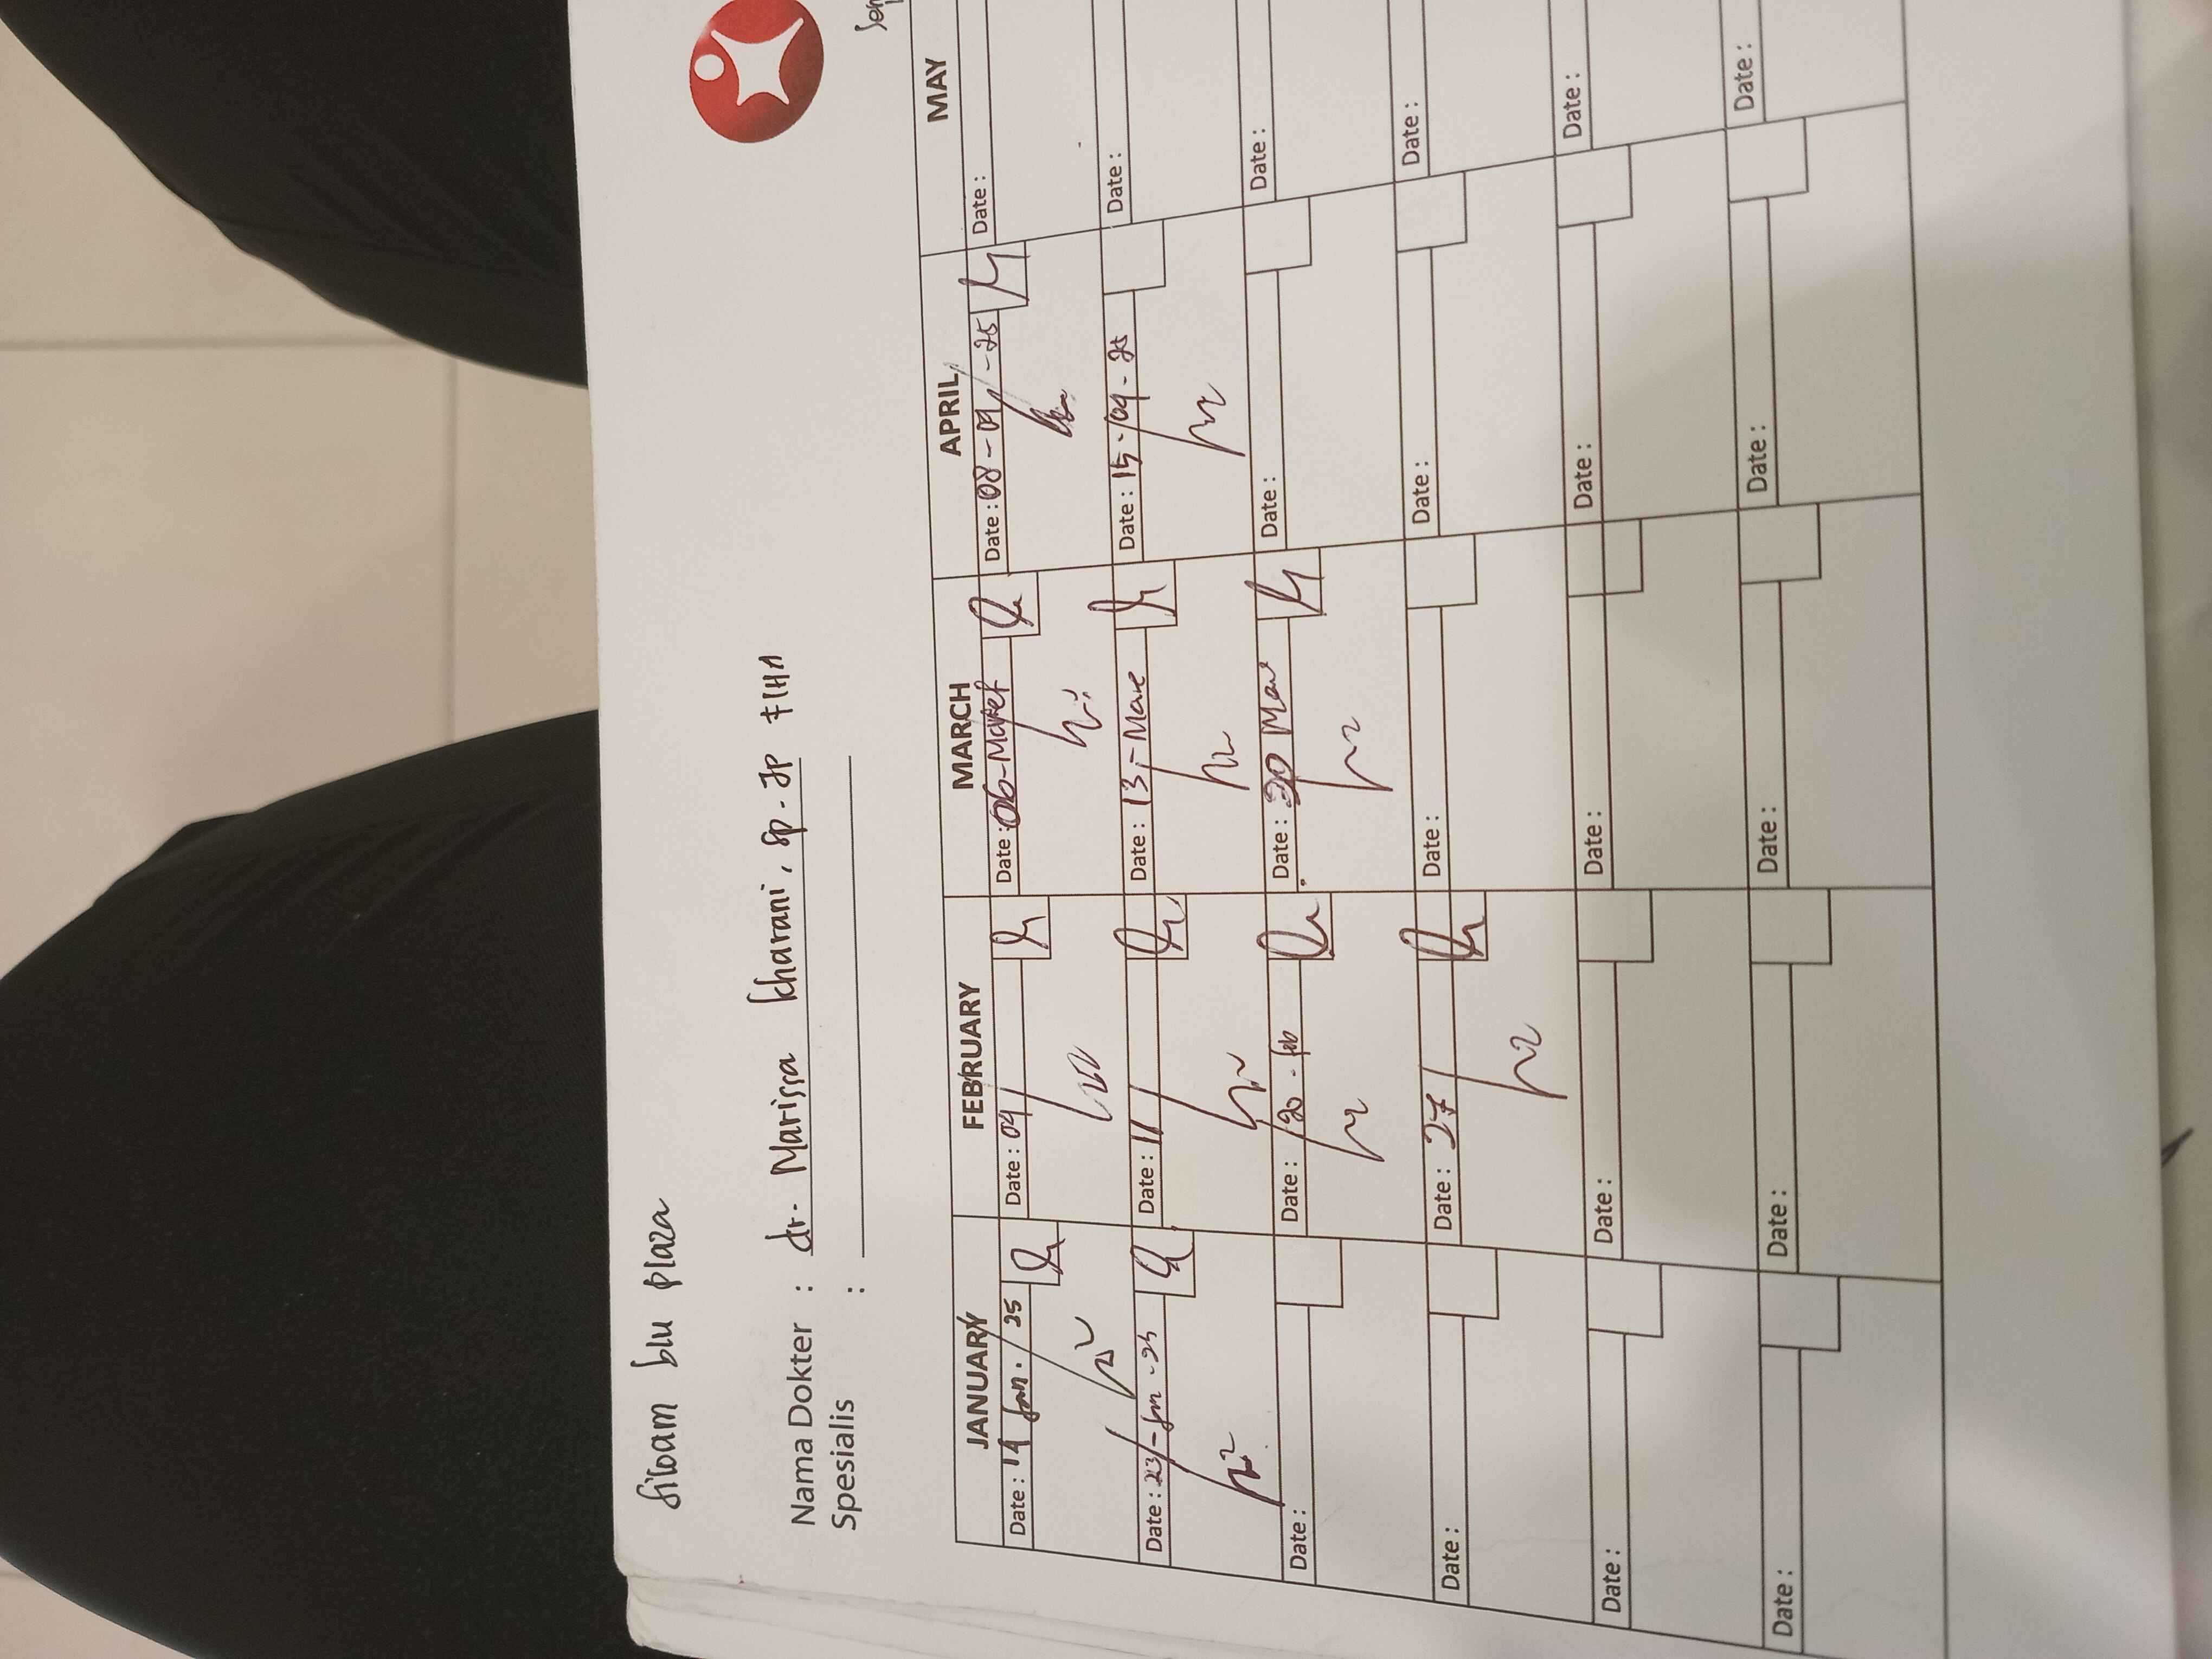 Siloam blu plaza
Nama Dokter : dr. Marissa kharani, sp. JP FIHA
Spesialis :
JANUARY FEBRUARY MARCH APRIL MAY
Date : 14 Jan . 25 Date : 04 Date : 06-Maret Date : 08-04-25 Date :
Date : 23-Jan-25 Date : 11 Date : 13,-Mare Date : 15-04-25 Date :
Date : Date : 20 - feb Date : 20 Mar Date : Date :
Date : Date : 27 Date : Date : Date :
Date : Date : Date : Date : Date :
Date : Date : Date : Date : Date :